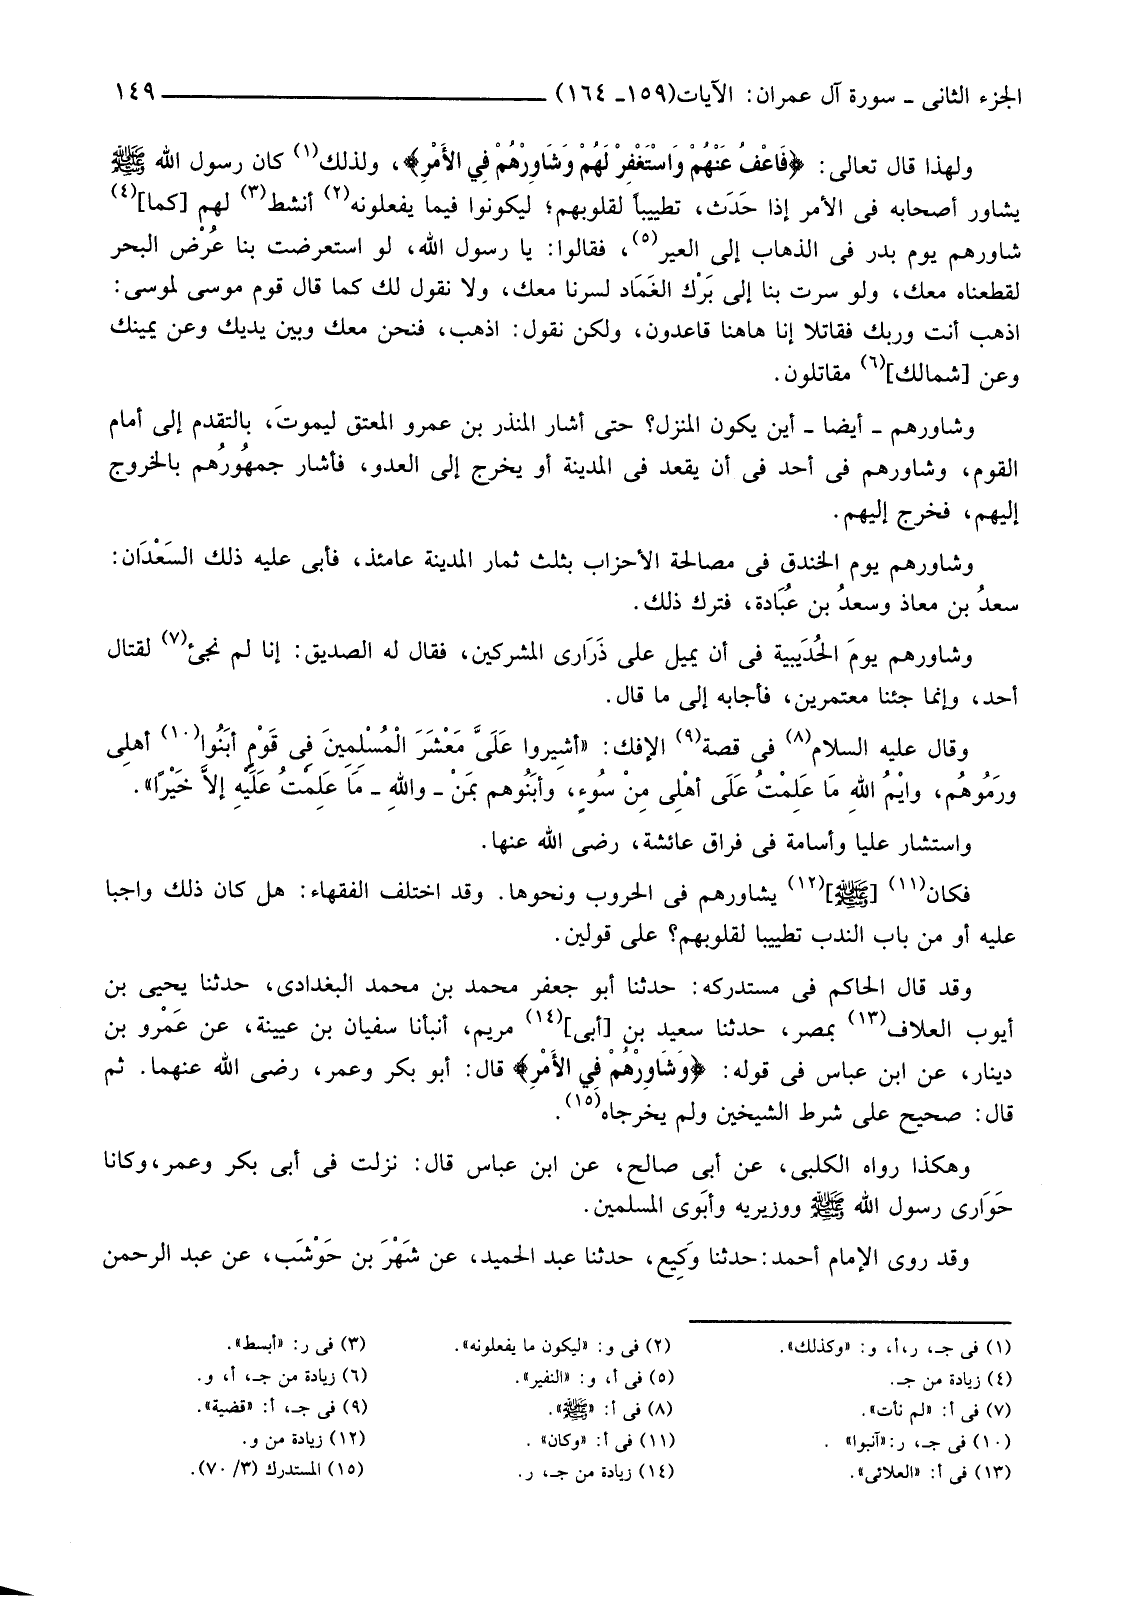 الجزء الثانى ـ سورة آل عمران: الآيات(١٥٩ـ ١٦٤) ١٤٩
ولهذا قال تعالى: ﴿فَاعْفُ عَنْهُمْ وَاسْتَغْفِرْ لَهُمْ وَشَاوِرْهُمْ فِي الأَمْرِ﴾، ولذلك(١) كان رسول الله ﷺ
يشاور أصحابه فى الأمر إذا حَدَث، تطييباً لقلوبهم؛ ليكونوا فيما يفعلونه(٢) أنشط(٣) لهم [كما](٤)
شاورهم يوم بدر فى الذهاب إلى العير(٥)، فقالوا: يا رسول الله، لو استعرضت بنا عُرْض البحر
لقطعناه معك، ولو سرت بنا إلى بَرْك الغَمَاد لسرنا معك، ولا نقول لك كما قال قوم موسى لموسى:
اذهب أنت وربك فقاتلا إنا هاهنا قاعدون، ولكن نقول: اذهب، فنحن معك وبين يديك وعن يمينك
وعن [شمالك](٦) مقاتلون.
وشاورهم ـ أيضا ـ أين يكون المنزل؟ حتى أشار المنذر بن عمرو المعتق ليموتَ، بالتقدم إلى أمام
القوم، وشاورهم فى أحد فى أن يقعد فى المدينة أو يخرج إلى العدو، فأشار جمهُورُهم بالخروج
إليهم، فخرج إليهم.
وشاورهم يوم الخندق فى مصالحة الأحزاب بثلث ثمار المدينة عامئذ، فأبى عليه ذلك السَعْدَان:
سعدُ بن معاذ وسعدُ بن عُبَادة، فترك ذلك.
وشاورهم يومَ الحُدَيبية فى أن يميل على ذَرَارى المشركين، فقال له الصديق: إنا لم نجئ(٧) لقتال
أحد، وإنما جئنا معتمرين، فأجابه إلى ما قال.
وقال عليه السلام(٨) فى قصة(٩) الإفك: «أشِيروا عَلَىَّ مَعْشَرَ الْمُسْلِمِينَ فِى قَوْمٍ أبَنُوا(١٠) أهلِى
ورَمُوهُم، وايْمُ اللهِ مَا عَلِمْتُ عَلَى أهْلِى مِنْ سُوءٍ، وأبَنُوهم بمَنْ ـ واللهِ ـ مَا عَلِمْتُ عَلَيْهِ إلاَّ خَيْرًا».
واستشار عليا وأسامة فى فراق عائشة، رضى الله عنها.
فكان(١١) [ﷺ](١٢) يشاورهم فى الحروب ونحوها. وقد اختلف الفقهاء: هل كان ذلك واجبا
عليه أو من باب الندب تطييبا لقلوبهم؟ على قولين.
وقد قال الحاكم فى مستدركه: حدثنا أبو جعفر محمد بن محمد البغدادى، حدثنا يحيى بن
أيوب العلاف(١٣) بمصر، حدثنا سعيد بن [أبى](١٤) مريم، أنبأنا سفيان بن عيينة، عن عَمْرو بن
دينار، عن ابن عباس فى قوله: ﴿وَشَاوِرْهُمْ فِي الأَمْرِ﴾ قال: أبو بكر وعمر، رضى الله عنهما. ثم
قال: صحيح على شرط الشيخين ولم يخرجاه(١٥).
وهكذا رواه الكلبى، عن أبى صالح، عن ابن عباس قال: نزلت فى أبى بكر وعمر،وكانا
حَوَارى رسول الله ﷺ ووزيريه وأبَوى المسلمين.
وقد روى الإمام أحمد:حدثنا وَكِيع، حدثنا عبد الحميد، عن شَهْرَ بن حَوْشَب، عن عبد الرحمن
(١) فى جـ، ر،أ، و: «وكذلك». (٢) فى و: «ليكون ما يفعلونه». (٣) فى ر: «أبسط».
(٤) زيادة من جـ. (٥) فى أ، و: «النفير». (٦) زيادة من جـ، أ، و.
(٧) فى أ: «لم نأت». (٨) فى أ: «ﷺ». (٩) فى جـ، أ: «قضية».
(١٠) فى جـ، ر:«آنبوا» . (١١) فى أ: «وكان» . (١٢) زيادة من و.
(١٣) فى أ: «العلائى». (١٤) زيادة من جـ، ر. (١٥) المستدرك (٣/ ٧٠).